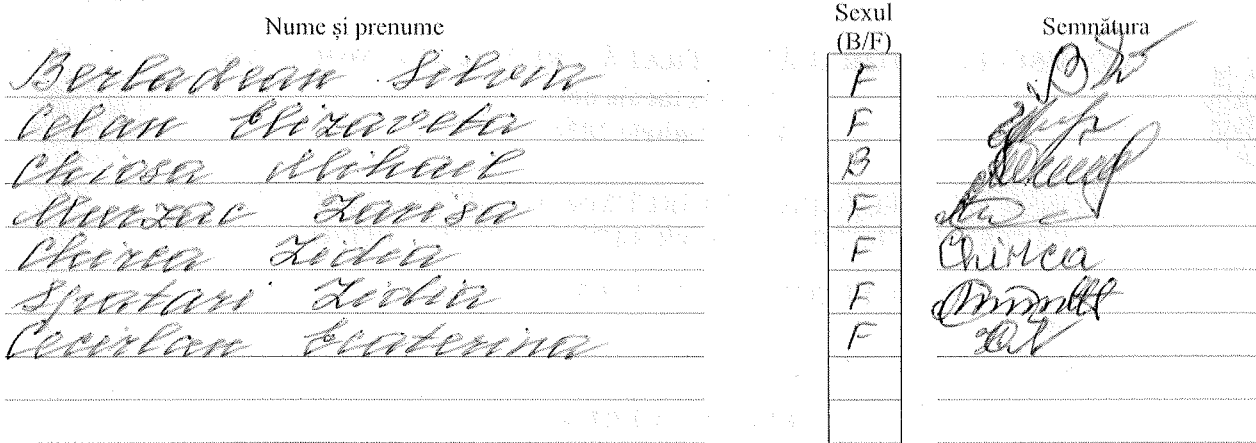 Nume și prenume Sexul (B/F) Semnătura
Berladean Silvia F
Celan Elizaveta F
Chiosa Mihail B
Murzac Larisa F
Chircea Lidia F Chircea
Spatari Lidia F
Ecaterina F